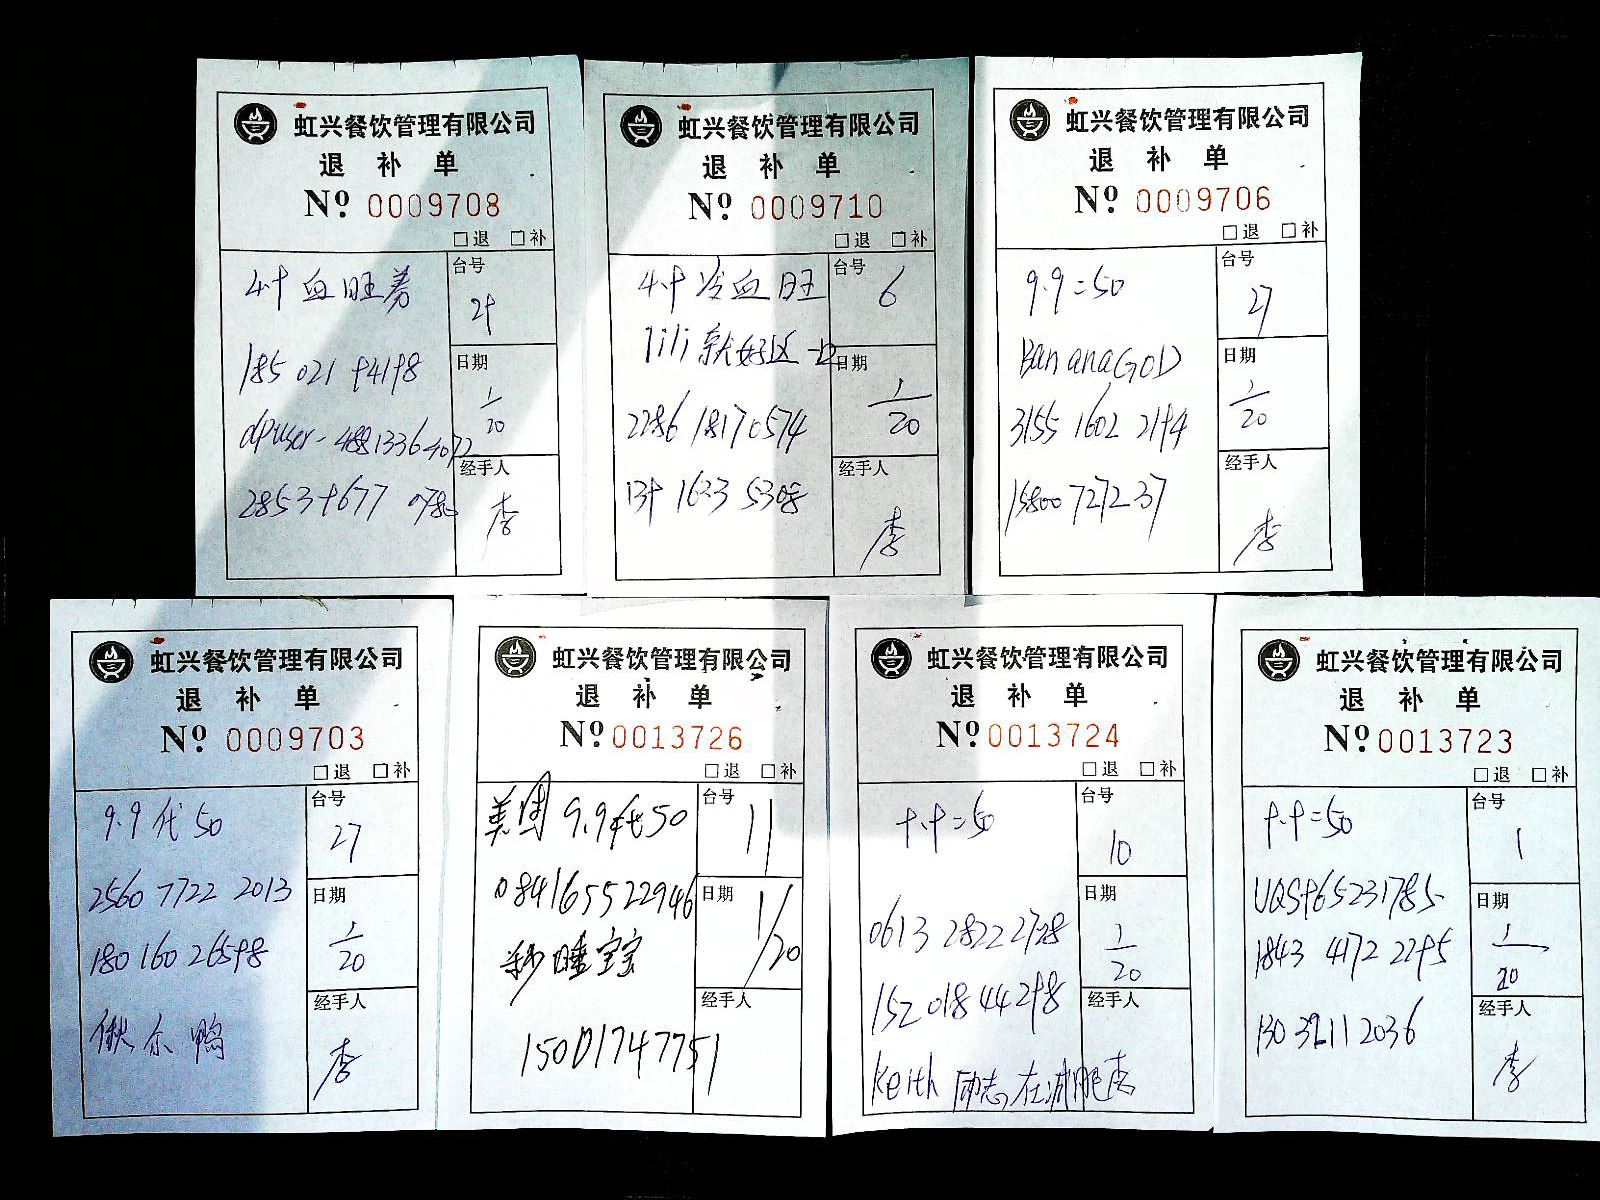 虹兴餐饮管理有限公司
退 补 单
Nº 0009708
□退 □补
台号
血旺券
185 021 94198
日期
1/20
dpuser-48813364072
经手人
2853 9677 0786
李
虹兴餐饮管理有限公司
退 补 单
Nº 0009710
□退 □补
台号
6
冷血旺
lili 就好这一口
日期
1/20
2286 1817 0574
经手人
139 1633 5308
李
虹兴餐饮管理有限公司
退 补 单
Nº 0009706
□退 □补
9.9=50
台号
27
BananaGOD
日期
1/20
3155 1602 2194
经手人
15800 727237
李
虹兴餐饮管理有限公司
退 补 单
Nº 0009703
□退 □补
9.9代50
台号
27
2560 7722 2013
日期
1/20
180 160 26598
经手人
尔鸭
李
虹兴餐饮管理有限公司
退 补 单
Nº 0013726
□退 □补
美团 9.9代50
台号
11
084165522946
日期
1/20
秒睡宝宝
经手人
15001747751
虹兴餐饮管理有限公司
退 补 单
Nº 0013724
□退 □补
9.9=50
台号
10
0613 2822 2728
日期
1/20
152 018 44298
经手人
Keith 同志在减肥
李
虹兴餐饮管理有限公司
退 补 单
Nº 0013723
□退 □补
9.9=50
台号
1
UQS965231785
日期
1/20
1843 4172 2295
经手人
130 3211 2036
李